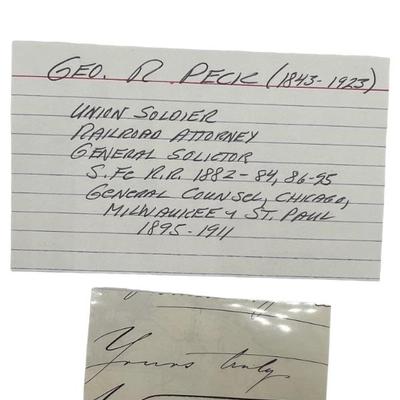 GEO. R. PECK (1843-1923)
UNION SOLDIER
RAILROAD ATTORNEY
GENERAL SOLICTOR
S. Fe R.R. 1882-84, 86-95
GENERAL COUNSEL, CHICAGO,
MILWAUKEE & ST. PAUL
1895-1911
Yours truly